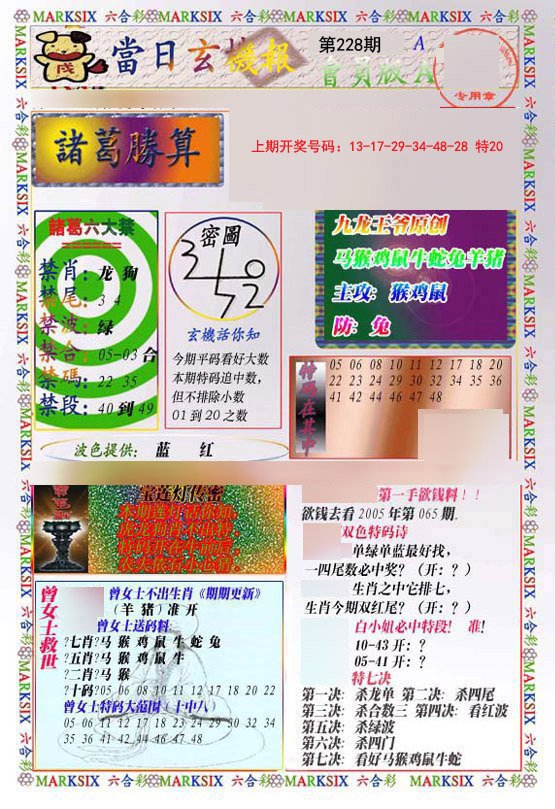 MARKSIX 六合彩 MARKSIX 六合彩 MARKSIX 六合彩 MARKSIX 六合彩 MARKSIX 六合彩
當日玄機報
第228期
A
會員版A
专用章
諸葛勝算
上期开奖号码：13-17-29-34-48-28 特20
諸葛六大禁
禁肖：龙 狗
禁尾：3 4
禁波：绿
禁合：05-03 合
禁碼：22 35
禁段：40 到 49
密圖
玄機話你知
今期平码看好大数
本期特码追中数，
但不排除小数
01 到 20 之数
九龙王爷原创
马猴鸡鼠牛蛇兔羊猪
主攻：猴鸡鼠
防：兔
特碼在其中
05 06 08 10 11 12 17 18 20
22 23 24 29 30 32 34 35 36
41 42 44 46 47 48
波色提供： 蓝 红
宝莲灯传密
本期莲灯话你知，
曾女士救世
曾女士不出生肖《期期更新》
（羊 猪）准 开
曾女士送码料：
?七肖?马 猴 鸡 鼠 牛 蛇 兔
?五肖?马 猴 鸡 鼠 牛
?二肖?马 猴
?十码?05 06 08 10 11 12 17 18 20 22
曾女士特码大范围（十中八）
05 06 11 12 17 18 23 24 29 30 32 34
35 36 41 42 44 46 47 48
第一手欲钱料！！
欲钱去看 2005 年第 065 期.
双色特码诗
单绿单蓝最好找，
一四尾数必中奖？（开：？）
生肖之中它排七，
生肖今期双红尾？（开：？）
白小姐必中特段！ 准！
10-43 开：？
05-41 开：？
特七决
第一决：杀龙单 第二决：杀四尾
第三决：杀合数三 第四决：看红波
第五决：杀绿波
第六决：杀四门
第七决：看好马猴鸡鼠牛蛇
MARKSIX 六合彩 MARKSIX 六合彩 MARKSIX 六合彩 MARKSIX 六合彩 MARKSIX 六合彩